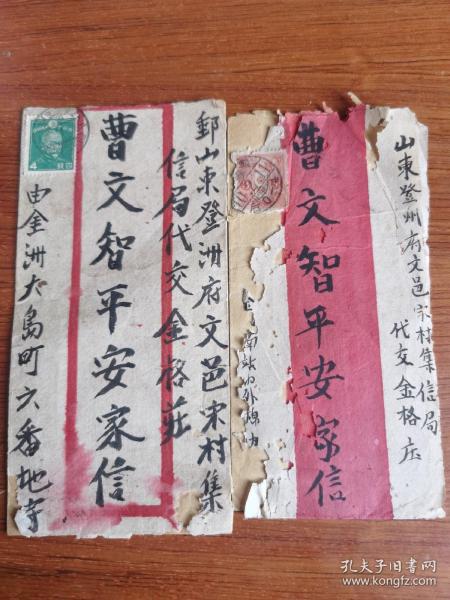 郵山東登洲府文邑宋村集
信局代交金格莊
曹文智平安家信
由金洲大島町六番地寄
4
山東登州府文邑宋村集信局
代交金格庄
曹文智平安家信
孔夫子旧书网
www.kongfz.com